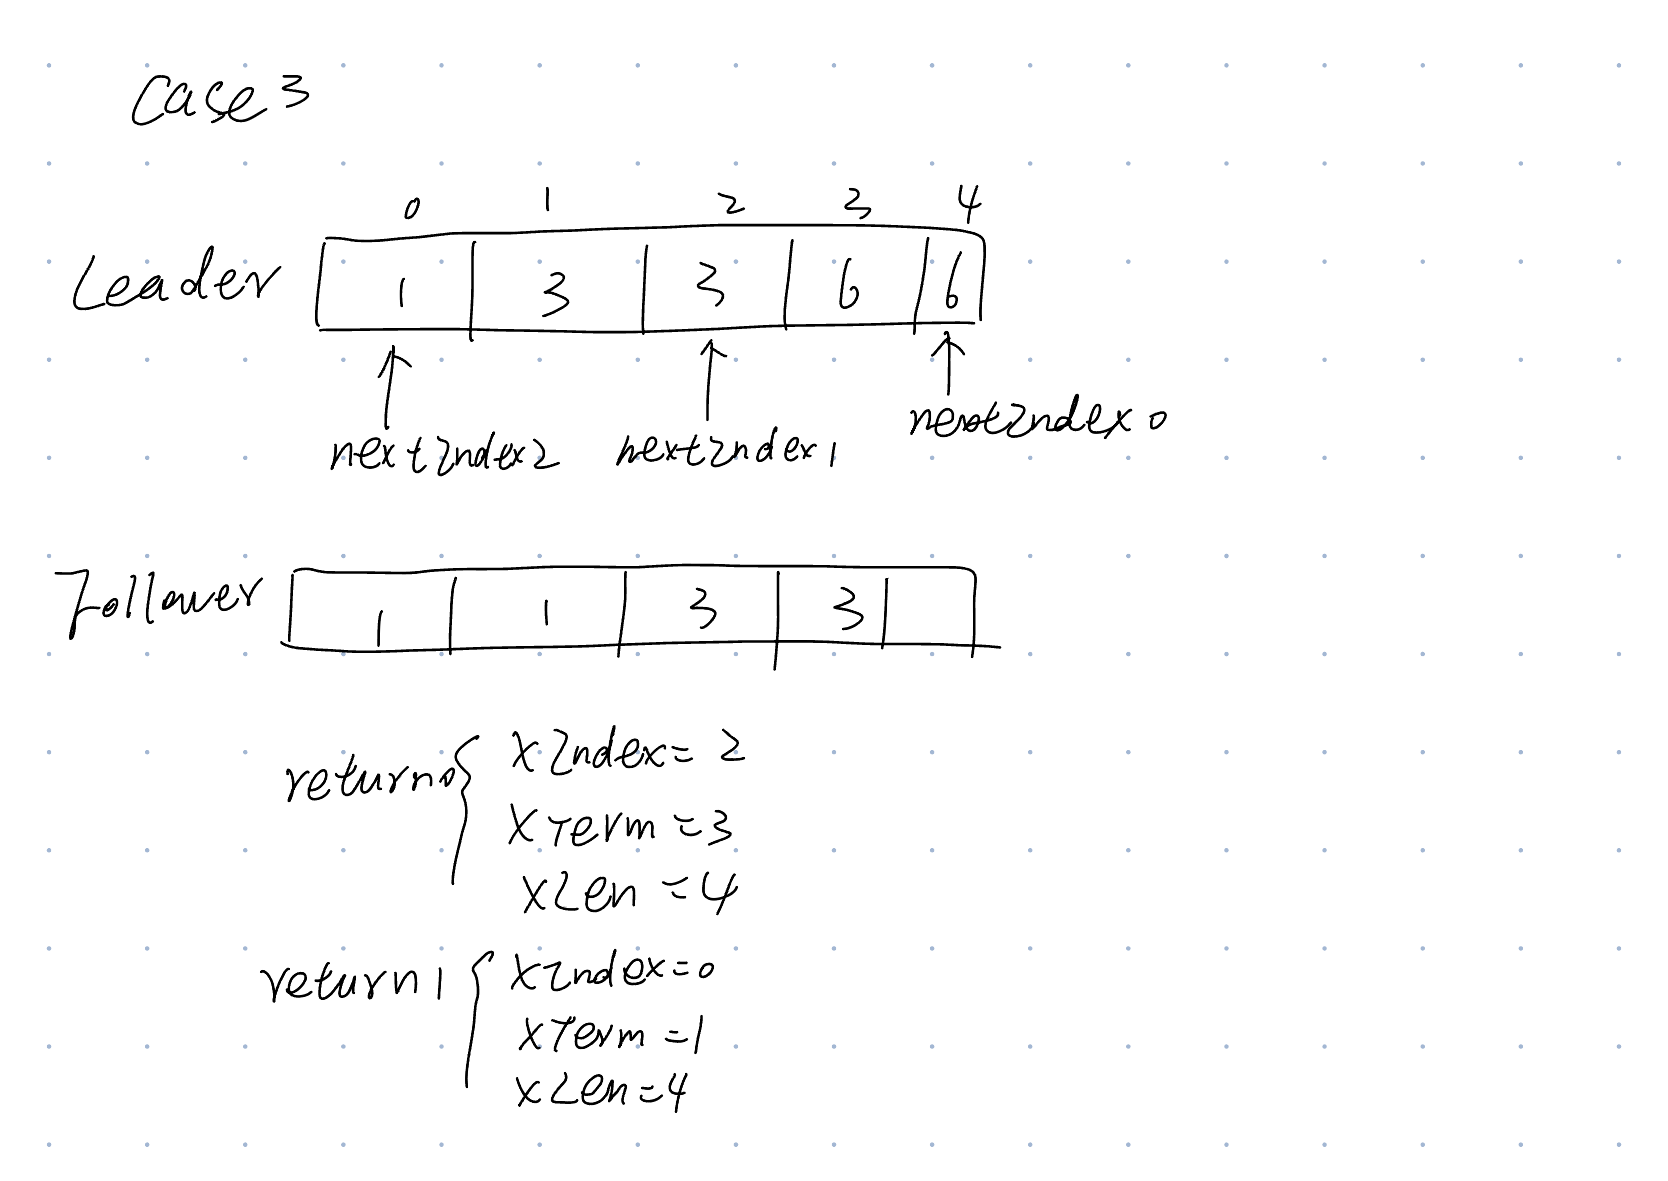 Case 3
0 1 2 3 4
Leader 1 3 3 6 6
nextIndex2 nextIndex1 nextIndex0
Follower 1 1 3 3
return0 { XIndex = 2
XTerm = 3
XLen = 4
return1 { XIndex = 0
XTerm = 1
XLen = 4